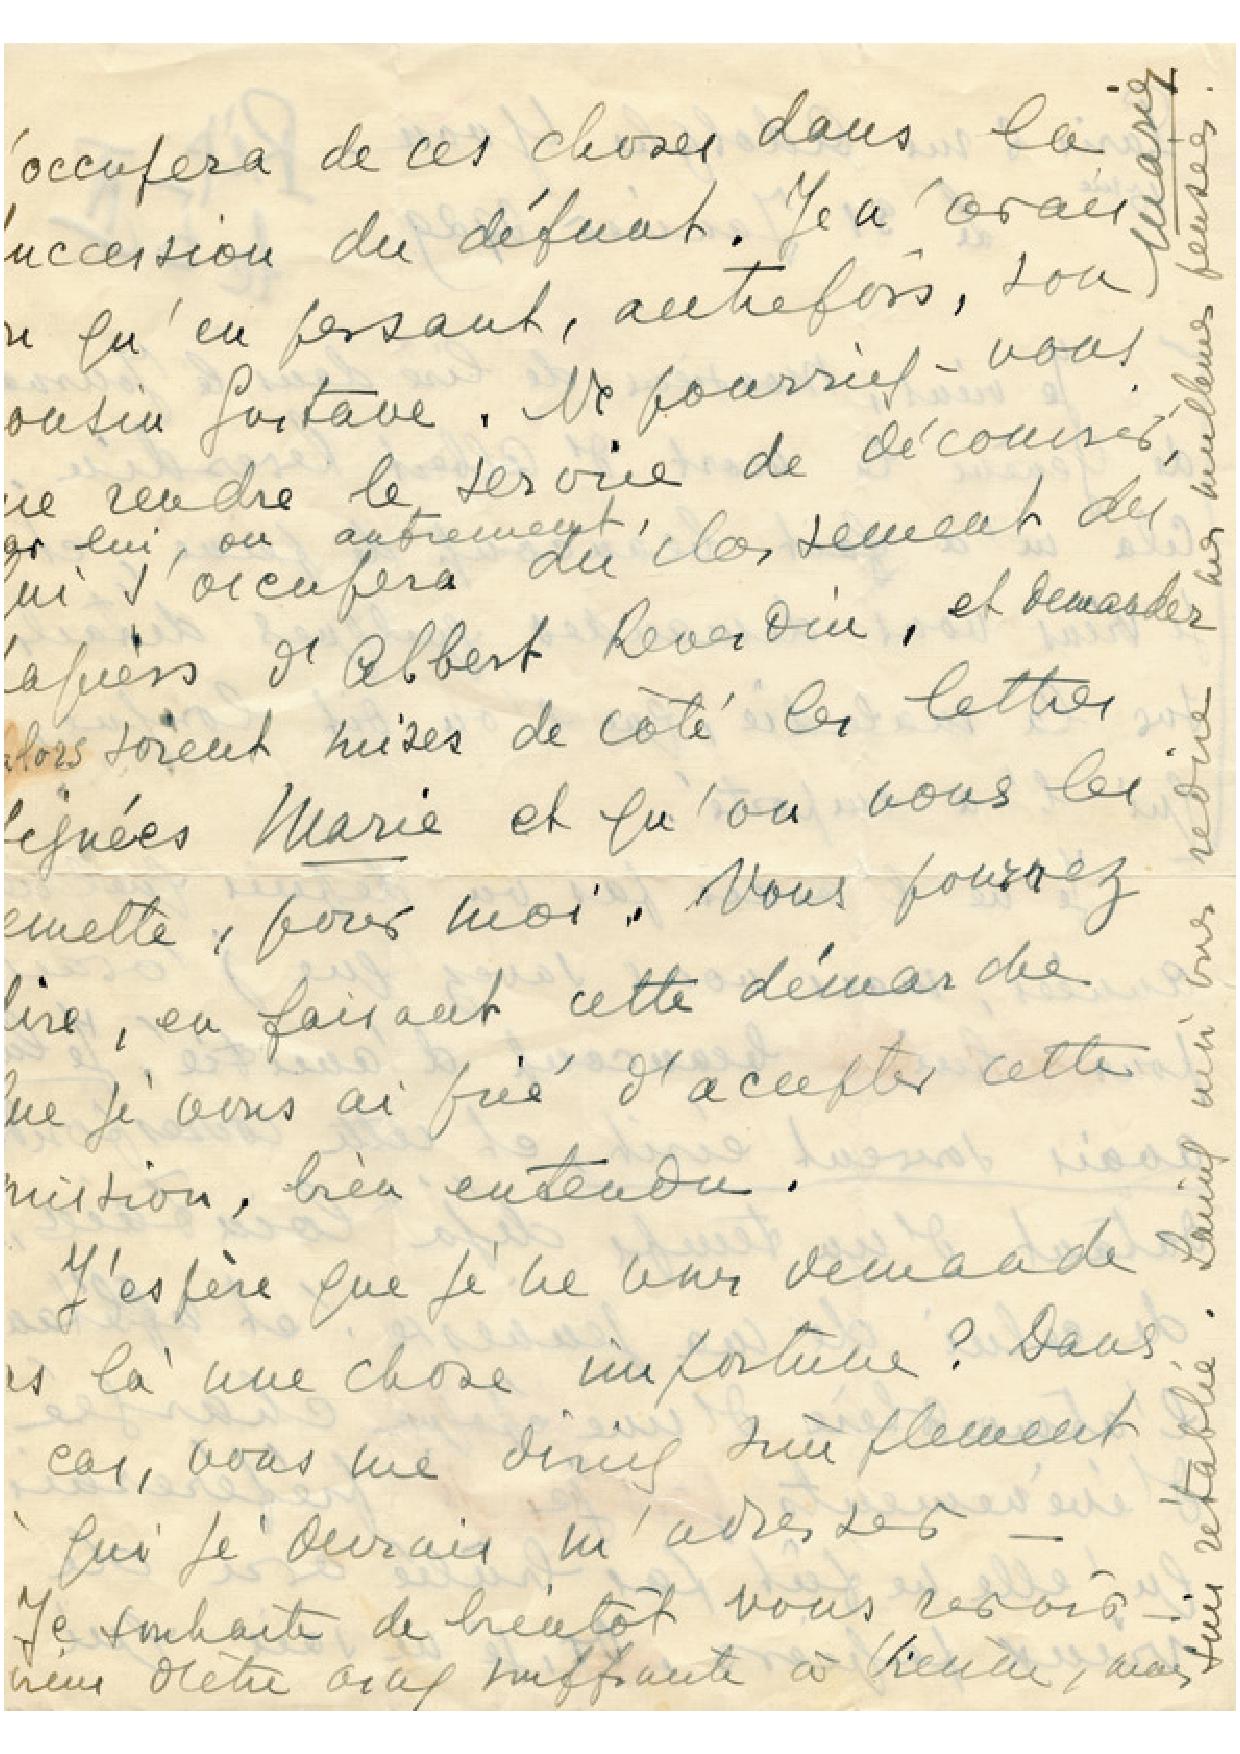 'occupera de ces choses dans la
uccession du défunt. Je n'avais
n qu'en passant, autrefois, son
ousin Gustave. Ne pourriez-vous
me rendre le service de découvrir,
par lui, ou autrement,
qui s'occupera du classement des
apiers d'Albert Reverdin, et demander
alors soient mises de côté les lettres
signées Marie et qu'on vous les
emette, pour moi. Vous pourrez
dire, en faisant cette démarche
que je vous ai prié d'accepter cette
mission, bien entendu.
J'espère que je ne vous demande
as là une chose importune? Dans
cas, vous me diriez simplement
à qui je devrais m'adresser —
Je souhaite de bientôt vous revoir —
viens d'être assez souffrante à Vienne, mais
suis rétablie. Laissez moi vous redire
mes meilleures pensées.
Marie